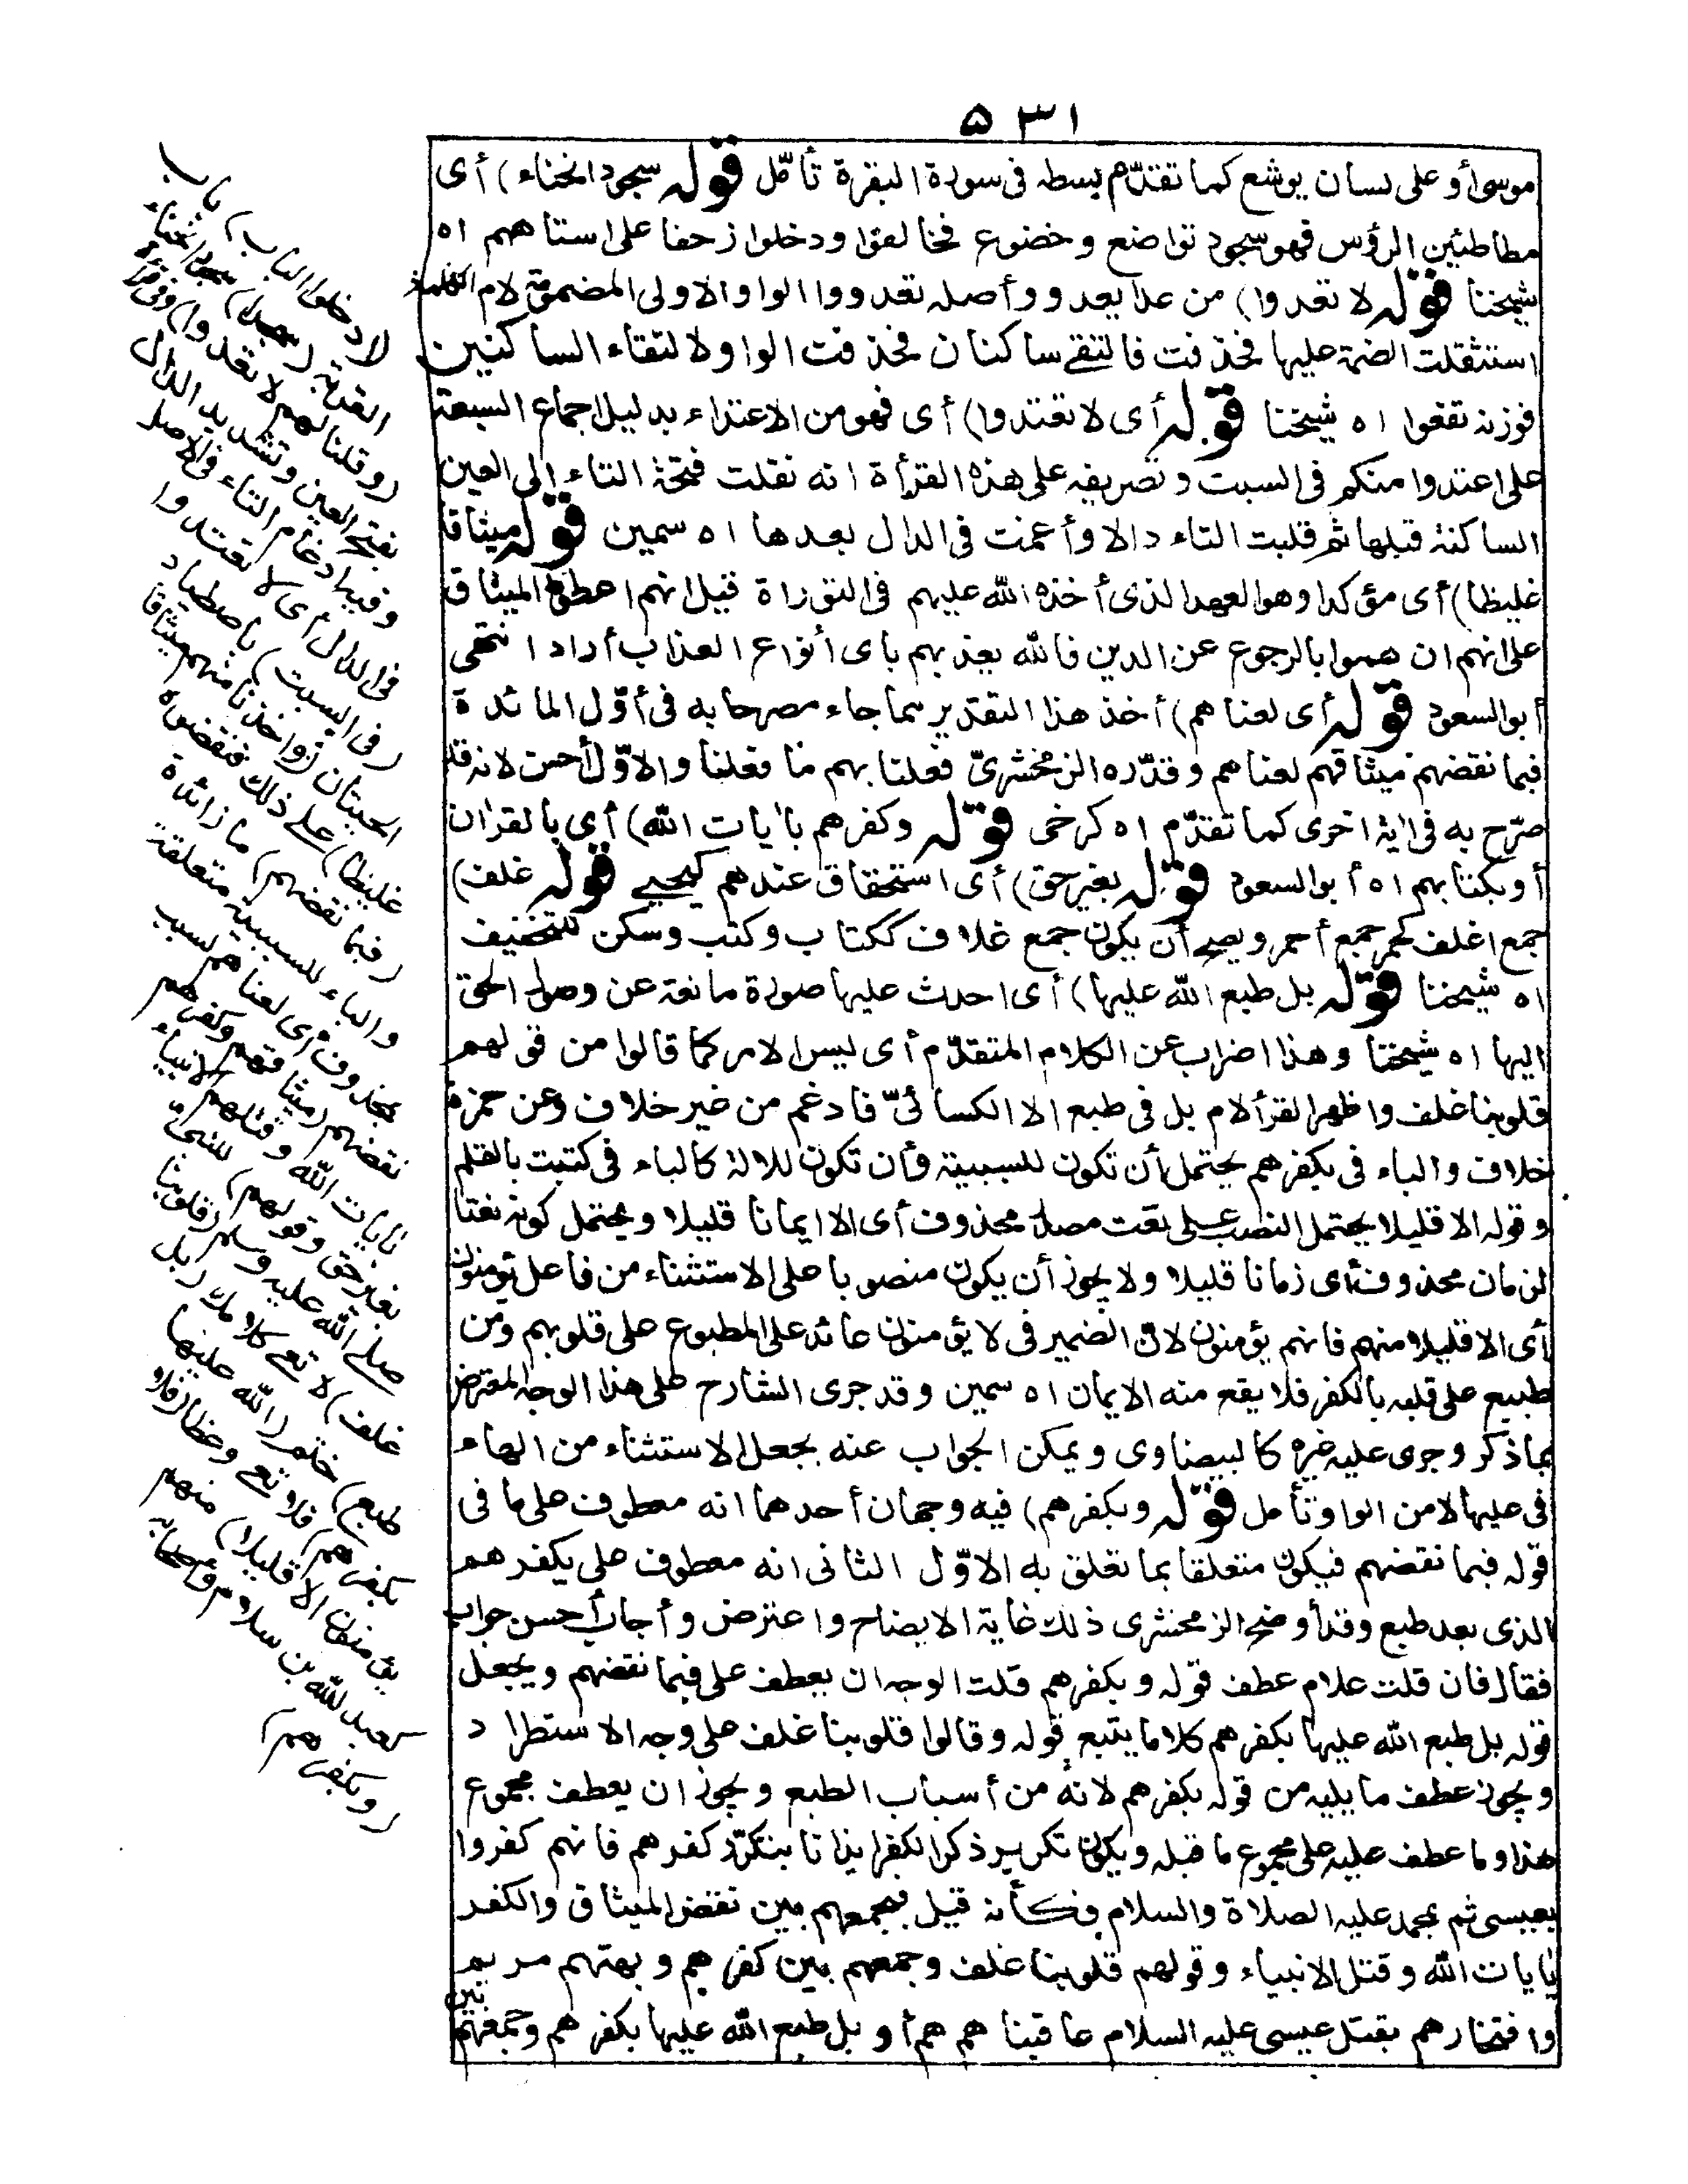 ٥٣١
موسى أو على لسان يوشع كما تقدّم بسطه فى سورة البقرة تأمّل قوله سجود انحناء) أى
مطاطئين الرؤس فهو سجود تواضع وخضوع فخالفوا ودخلوا زحفا على استاههم اه
شيخنا قوله لا تعدوا) من عدا يعدو وأصله تعدووا الواو الاولى المضمومة لام الكلمة
استثقلت الضمة عليها فحذفت فالتقى ساكنان فحذفت الواو لالتقاء الساكنين
فوزنه تفعوا اه شيخنا قوله أى لا تعتدوا) أى فهو من الاعتداء بدليل اجماع السبعة
على اعتدوا منكم فى السبت وتصريفه على هذه القرأة انه نقلت فتحة التاء الى العين
الساكنة قبلها ثم قلبت التاء دالا وأدغمت فى الدال بعدها اه سمين قوله ميثاقا
غليظا) أى مؤكدا وهو العهد الذى أخذه الله عليهم فى التوراة قيل انهم اعطوا الميثاق
على انهم ان هموا بالرجوع عن الدين فالله يعذبهم باى أنواع العذاب أراد انتهى
أبو السعود قوله أى لعناهم) أخذ هذا التقدير مما جاء مصرحا به فى أوّل المائدة
فبما نقضهم ميثاقهم لعناهم وقدّره الزمخشرىّ فعلنا بهم ما فعلنا والاوّل أحسن لانه قد
صرّح به فى اية اخرى كما تقدّم اه كرخى قوله وكفرهم بايات الله) أى بالقران
أو بكتابهم اه أبو السعود قوله بغير حق) أى استحقاق عندهم كيحيى قوله غلف)
جمع اغلف كحمر جمع أحمر ويصح أن يكون جمع غلاف ككتاب وكتب وسكن للتخفيف
اه شيخنا قوله بل طبع الله عليها) أى احدث عليها صورة مانعة عن وصول الحق
اليها اه شيخنا وهذا اضراب عن الكلام المتقدّم أى ليس الامر كما قالوا من قولهم
قلوبنا غلف واظهر القرألام بل فى طبع الا الكسائىّ فادغم من غير خلاف وعن حمزة
خلاف والباء فى بكفرهم يحتمل أن تكون للسببية وأن تكون للالة كالباء فى كتبت بالقلم
وقوله الا قليلا يحتمل النصب على نعت مصدر محذوف أى الا ايمانا قليلا ويحتمل كونه نعتا
لزمان محذوف أى زمانا قليلا ولا يجوز أن يكون منصوبا على الاستثناء من فاعل يؤمنون
أى الا قليلا منهم فانهم يؤمنون لانّ الضمير فى لا يؤمنون عائد على المطبوع على قلوبهم ومن
طبع على قلبه بالكفر فلا يقع منه الايمان اه سمين وقد جرى الشارح على هذا الوجه المعترض
بما ذكر وجرى عليه غيره كالبيضاوى ويمكن الجواب عنه بجعل الاستثناء من الهاء
فى عليها لا من الواو تأمل قوله وبكفرهم) فيه وجهان أحدهما انه معطوف على ما فى
قوله فبما نقضهم فيكون متعلقا بما تعلق به الاوّل الثانى انه معطوف على بكفرهم
الذى بعد طبع وقد أوضح الزمخشرى ذلك غاية الايضاح واعترض وأجاب أحسن جواب
فقال فان قلت علام عطف قوله وبكفرهم قلت الوجه ان يعطف على فبما نقضهم ويجعل
قوله بل طبع الله عليها بكفرهم كلاما يتبع قوله وقالوا قلوبنا غلف على وجه الاستطراد
ويجوز عطف ما يليه من قوله بكفرهم لانه من أسباب الطبع ويجوز ان يعطف مجموع
هذا وما عطف عليه على مجموع ما قبله ويكون تكرير ذكر الكفر ايذانا بتكرّر كفرهم فانهم كفروا
بعيسى ثم بمحمد عليه الصلاة والسلام فكأنه قيل فبجمعهم بين نقض الميثاق والكفر
بايات الله وقتل الانبياء وقولهم قلوبنا غلف وجمعهم بين كفرهم وبهتهم مريم
وافتخارهم بقتل عيسى عليه السلام عاقبناهم أو بل طبع الله عليها بكفرهم وجمعهم بين
لا دخلوا الباب) باب
القرية (سجدا) سجود انحناء
(وقلنا لهم لا تعدوا) وفى قرأة
بفتح العين وتشديد الدال
وفيه ادغام التاء فى الاصل
فى الدال أى لا تعتدوا
(فى السبت) باصطياد
الحيتان (واخذنا منهم ميثاقا
غليظا) على ذلك فنقضوه
(فبما نقضهم) ما زائدة
والباء للسببية متعلقة
بمحذوف أى لعناهم بسبب
نقضهم (ميثاقهم وكفرهم
بايات الله وقتلهم الانبياء
بغير حق وقولهم) للنبىّ
صلى الله عليه وسلم (قلوبنا
غلف) لا تعى كلامك (بل
طبع) ختم (الله عليها
بكفرهم) فلا تعى وعظا (فلا
يؤمنون الا قليلا) منهم
كعبد الله بن سلام وأصحابه
(وبكفرهم)